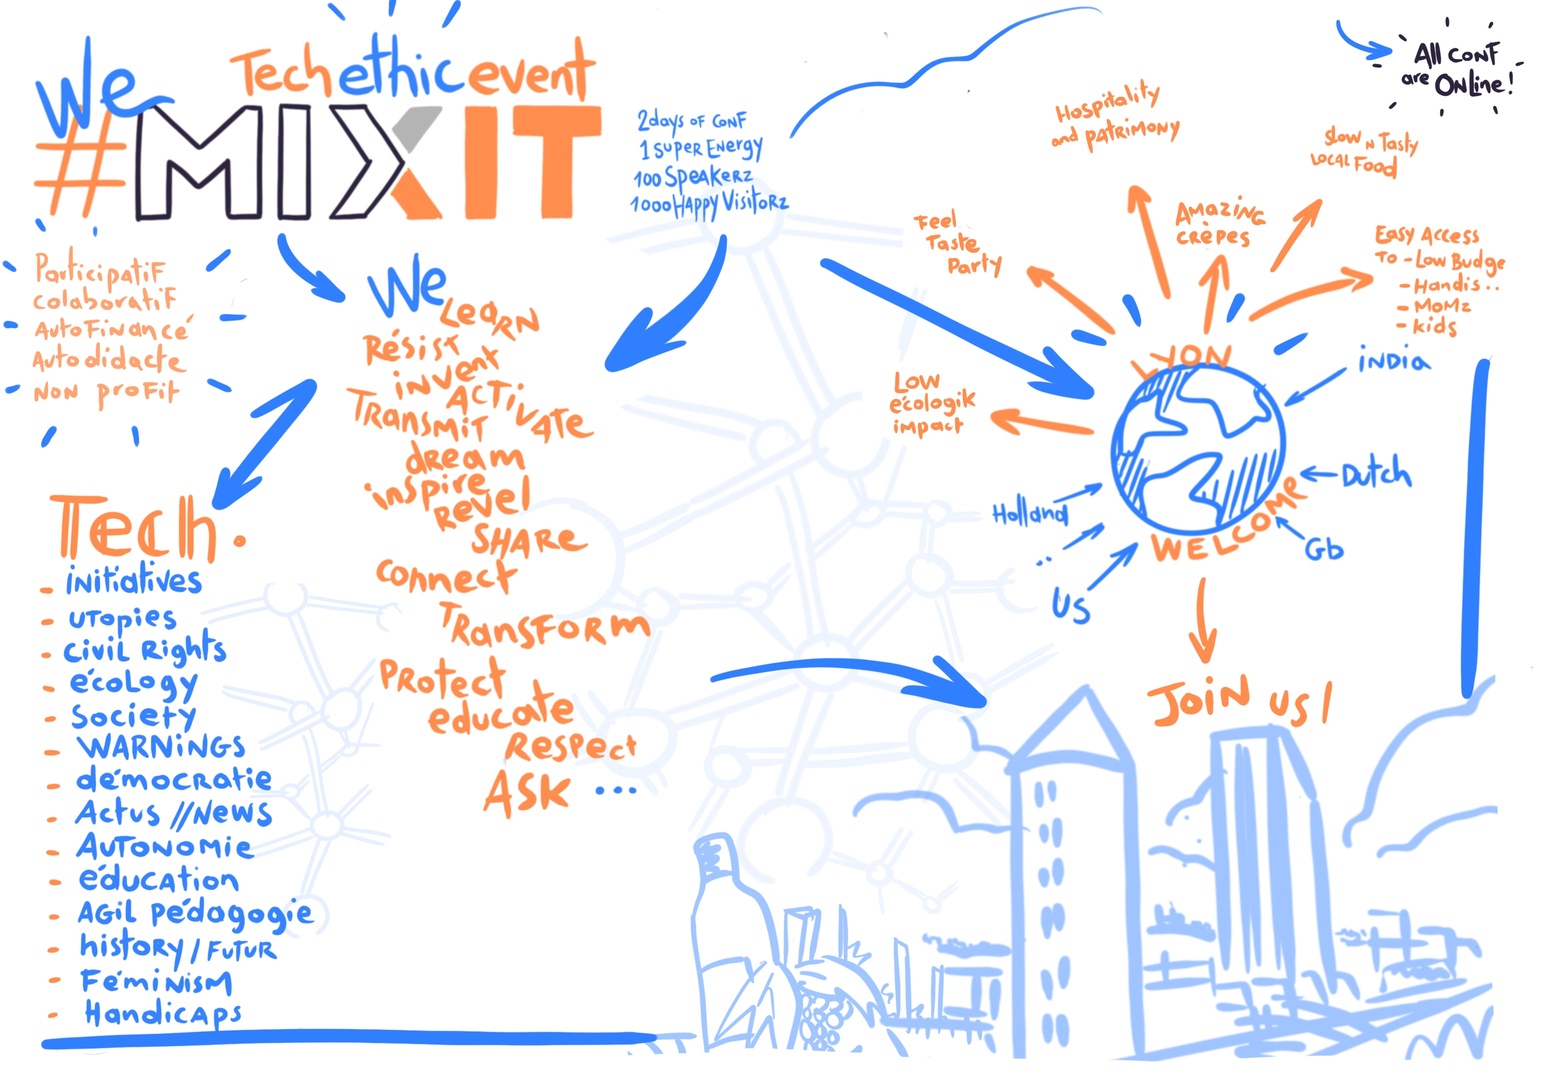 We
Tech ethic event
#MIXIT
2days OF CONF
1 SUPER ENERGY
100 SPEAKERZ
1000 HAPPY VISITORZ
All CONF
are ONLine!
Participatif
colaboratif
AutoFinancé
Autodidacte
NON PROFIT
We
LEARN
Résist
invent
ACTIVATE
TRANSMIT
dream
inspire
REVEL
SHARE
connect
TRANSFORM
PROTECT
educate
RESPECT
ASK ...
Tech.
- initiatives
- UTOPIES
- CIVIL RIGHTS
- écology
- Society
- WARNINGS
- démocratie
- Actus //News
- AUTONOMIE
- éducation
- AGIL pédagogie
- history / FUTUR
- FéminisM
- Handicaps
Hospitality
and PATRIMONY
Slow N Tasty
LOCAL Food
Feel
Taste
Party
AMAZING
CRÈPES
Easy Access
To - Low Budge
- Handis..
- MoMz
- kids
Low
écologik
impact
LYON
INDIA
Dutch
Holland
..
US
Gb
WELCOME
JOIN US!